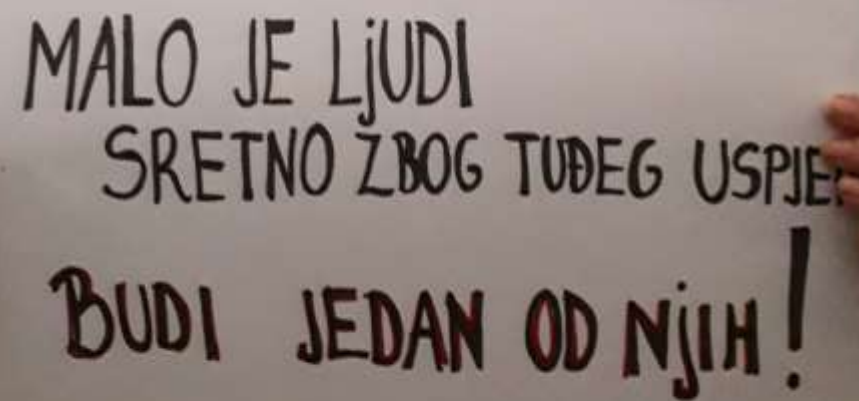 MALO JE LjUDI
SRETNO ZBOG TUĐEG
BUDI JEDAN OD NjIH!